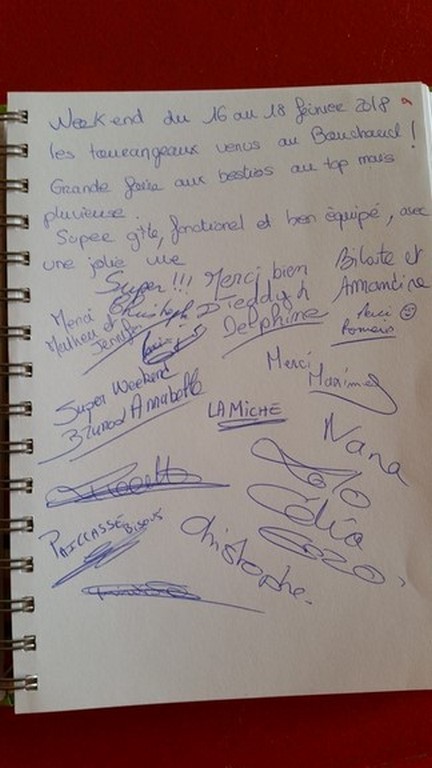 Week end du 16 au 18 février 2018
les tourangeaux venus au Bouchaud !
Grande foire aux bestios au top mais
pluvieuse.
Super gîte, fonctionel et bien équipé, avec
une jolie vue
Super !!! Merci bien
Biloite et
Amantine
Merci Christoph
Teddy
Mathieu et
Jennifer
Delphine
Merci
Romain
Merci
Maxime
Super Weekend
Bruno Annabelle
LA MICHE
Nana
Lolo
Célia
Zozo
PAILLASSE BISOUS
Christophe.